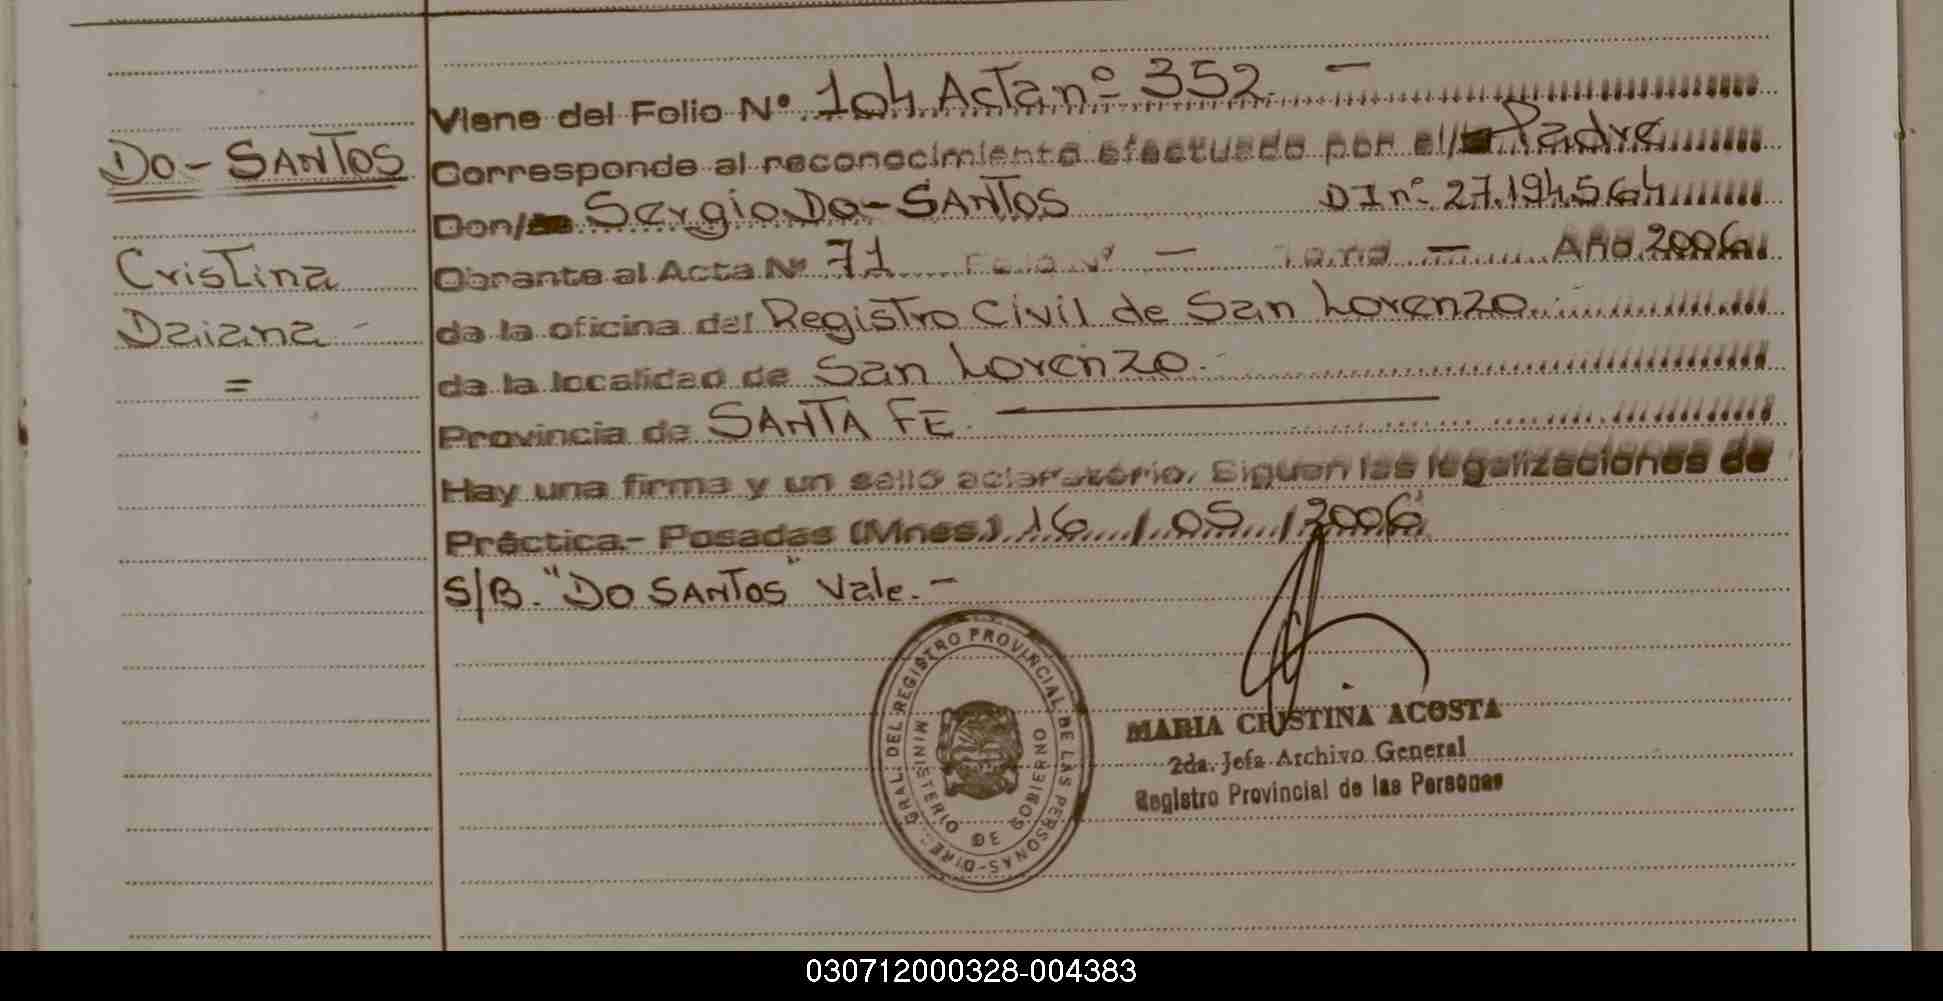 Viene del Folio Nº 104 Acta nº 352. —
Corresponde al reconocimiento efectuado por el/ Padre
DO-SANTOS
Don/ Sergio DO-SANTOS DI nº 27.194.564
Cristina
Obrante al Acta Nº 71 Folio Nº — Tomo — Año 2006
Daiana -
de la oficina del Registro Civil de San Lorenzo.
=
de la localidad de San Lorenzo.
Provincia de SANTA FE.
Hay una firma y un sello aclaratorio, Siguen las legalizaciones de
Práctica.- Posadas (Mnes.) 16 / 05 / 2006
S/B. "DO SANTOS" Vale. —
DIREC. GRAL. DEL REGISTRO PROVINCIAL DE LAS PERSONAS
MINISTERIO DE GOBIERNO
MARIA CRISTINA ACOSTA
2da. Jefa Archivo General
Registro Provincial de las Personas
030712000328-004383